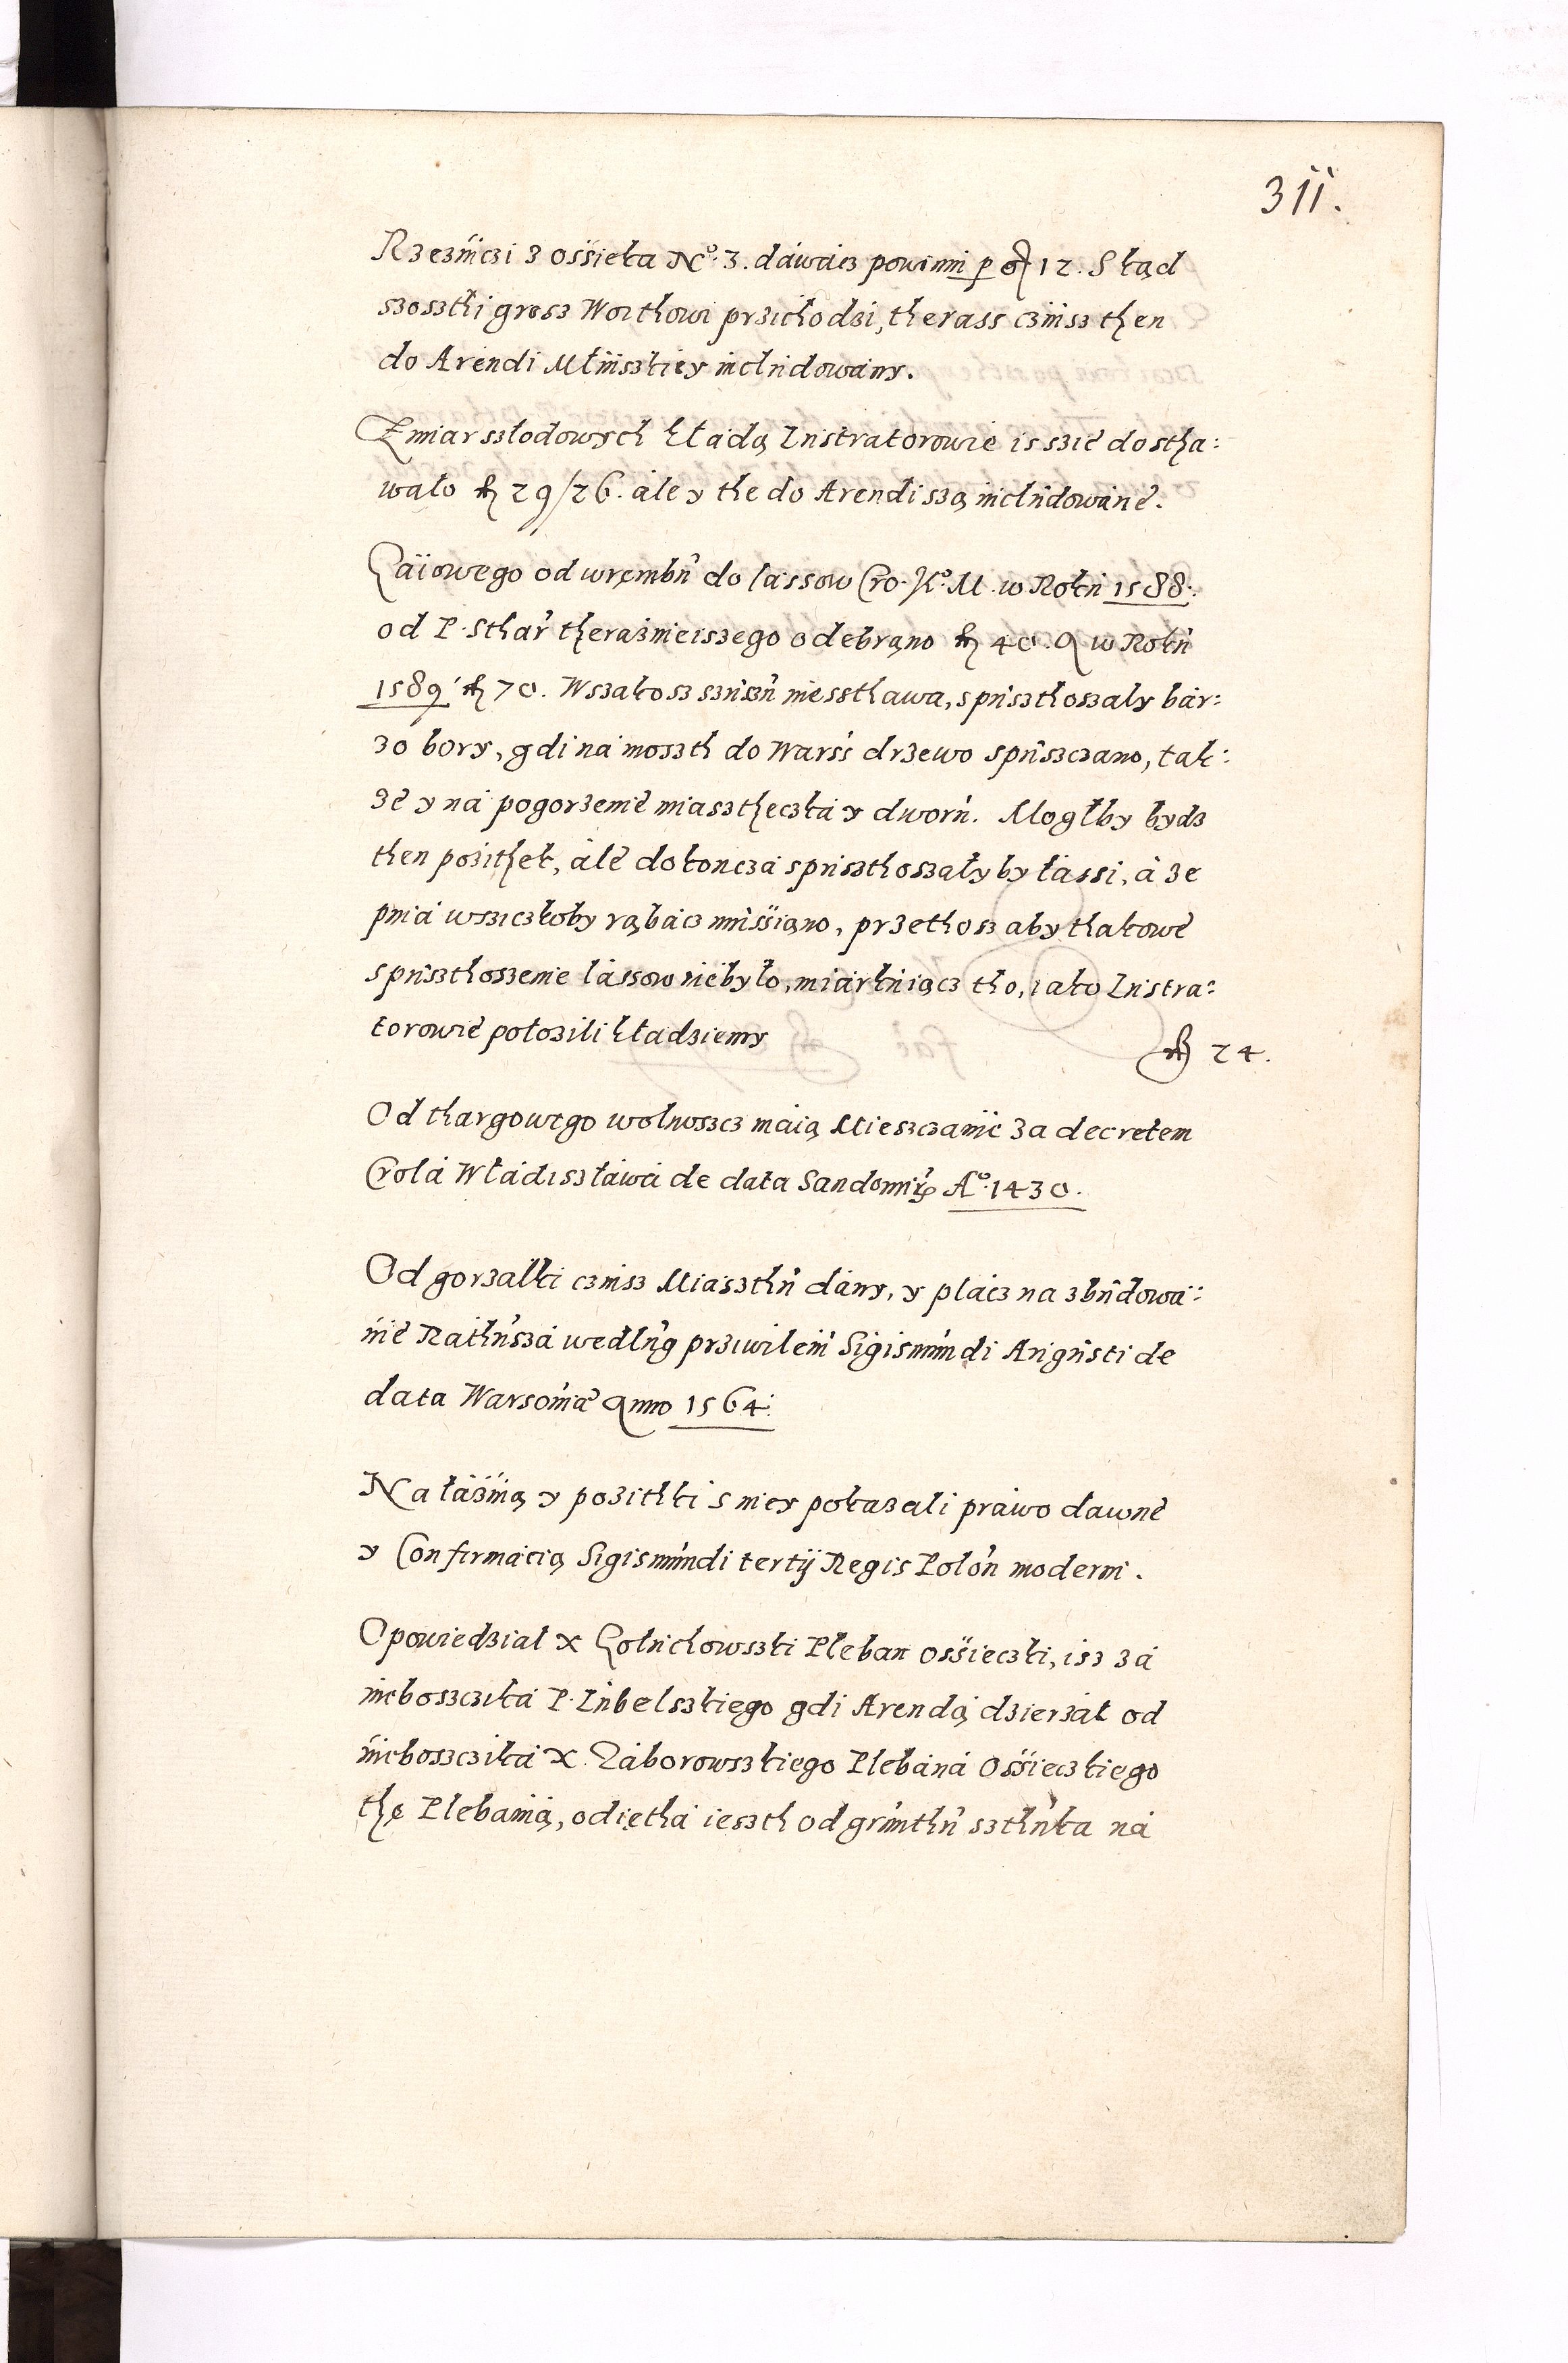 311.
Rzeznìczi z ossieka No. 3. dáwácz powinni p gr 12. Skąd
szoszthi grosz Woithowi przichodzi, therass czinsz then
do Arendi Młinszkiey includowány.
Z miar szłodowych kładą Lustratorowie is szie dostha:
wało fl 29/26. ále y the do Arendi szą includowáné.
Gáiowego od wrembu do lássow Cro. Ko. M. w Roku 1588.
od P. Sthar theraznieiszego odebrano fl 40. A w Roku
1589 fl 70. Wszakosz szuszu niessthawa, spuszthoszaly bár:
zo bory, gdi ná moszth do Warss drzewo spuszczano, tak:
ze y ná pogorzenie miasztheczká y dworu. Mogłby bydz
then pozithek, álé dokonczá spuszthoszałyby lássi, á ze
pniá wsziczkoby rąbácz mussiąno, przethosz aby thakowé
spuszthoszenie lássow niebyło, miárkuiącz tho, iáko Lustra:
torowie położili kładziemy
fl 24.
Od thargowego wolnoszcz máią Mieszczanie za decretem
Crolá Władiszłáwá de data Sandomirę Ao. 1430.
Od gorzałki czinsz Miaszthu dány, y płácz na zbudowá:
nié Rathuszá wedlug prziwileiu Sigismundi Augusti de
data Warsouiæ Anno 1564.
Na łáźnią y pozithki s niey pokazali práwo dawné
y Confirmácią Sigismundi tertij Regis Polon moderni.
Opowiedział X Gołuchowszki Pleban ossieczki, isz zá
nieboszczika P. Lubelszkiego gdi Arendą dzierzáł od
nieboszcziká X. Záborowszkiego Plebáná Ossieczkiego
thę Plebanią, odięthá ieszth od grunthu szthuka ná